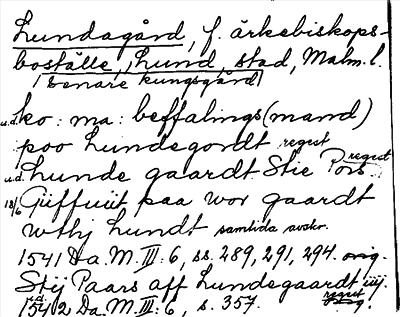 Lundagård, f. ärkebiskops-
boställe, Lund, stad, Malm. l.
(senare kungsgård)
u.d. ko: ma: beffalings(mand)
poo Lundegordt regest
u.d. Lunde gaardt Stie Pors regest
18/6 Giiffuiit paa wor gaardt
wthj Lundt samtida avskr.
1541 Da. M. III: 6, ss. 289, 291, 294. orig.
Stij Paars aff Lundegaardt iiij.
u.d. regest
1542 Da. M. III: 6, s. 357.